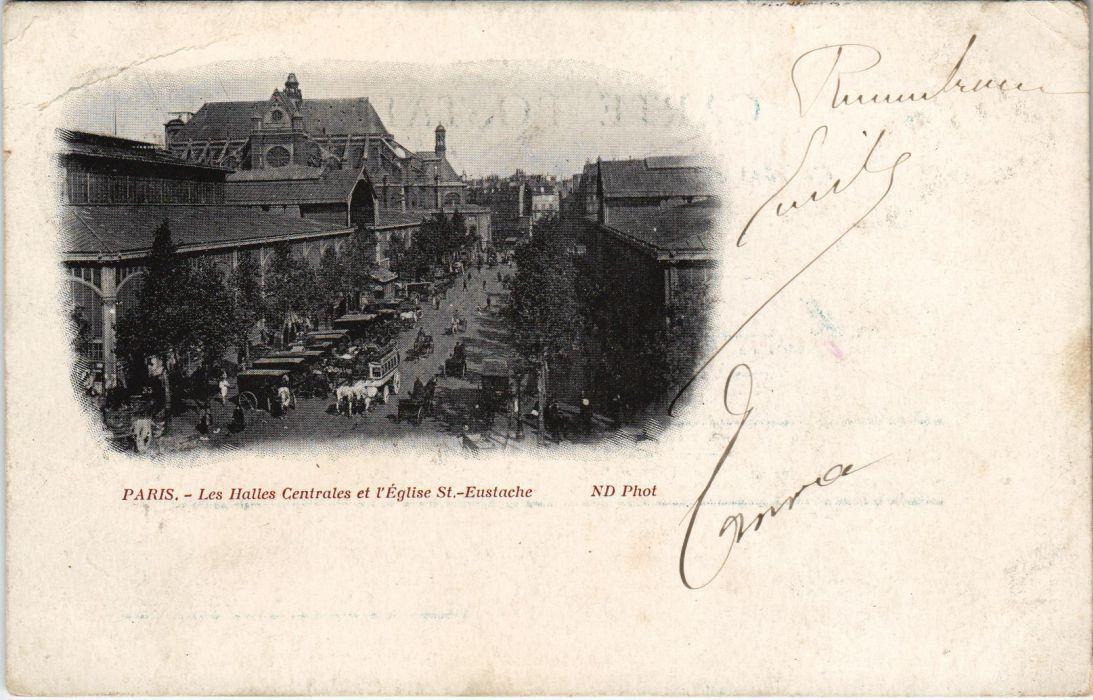 PARIS. - Les Halles Centrales et l'Église St.-Eustache
ND Phot
Emma